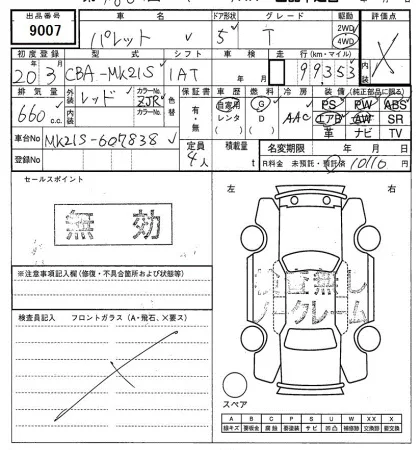 出品番号 車名 ドア形状 グレード 駆動 評価点
9007 パレット 5 T 2WD 4WD
初度登録 型式 シフト 車検 走行(km・マイル) 内装
20年3月 CBA-MK21S IAT 年 月 99353
排気量 外装 カラーNo. 色替 保証書 車歴 燃料 冷房 装備(純正部品に限る)
660 c.c. レッド ZJR 有・無 自家用 G AAC PS PW ABS
内装 カラーNo. レンタ D エアB AW SR
( ) ( ) 革 ナビ TV
車台No MK21S-607838 定員 積載量 名変期限 年 月 日
登録No 4人 t R料金 未預託・預託済 10110 円
セールスポイント
無効
左 右
※注意事項記入欄(修復・不具合箇所および状態等)
検査無し
ノークレーム
検査員記入 フロントガラス(A・飛石、×要ス)
スペア
A B C P S U W X XX
線キズ 要板金 腐蝕 要塗装 サビ 凹凸 補修跡 交換跡 要交換